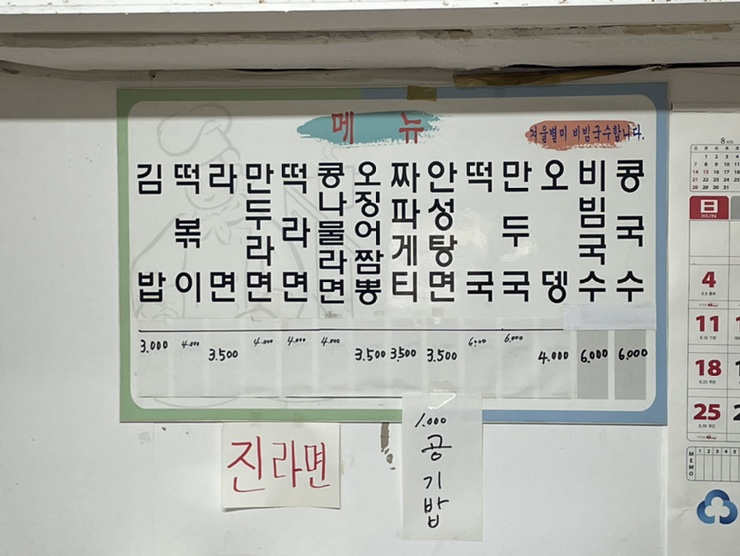 메뉴
겨울별미 비빔국수합니다.
김밥
떡볶이
라면
만두라면
떡라면
콩나물라면
오징어짬뽕
짜파게티
안성탕면
떡국
만두국
오뎅
비빔국수
콩국수
3.000
4.000
3.500
4.000
4.000
4.000
3.500
3.500
3.500
6.000
6.000
4.000
6.000
6.000
진라면
1.000
공기밥
8
日
SUN
4
11
18
25
MEMO